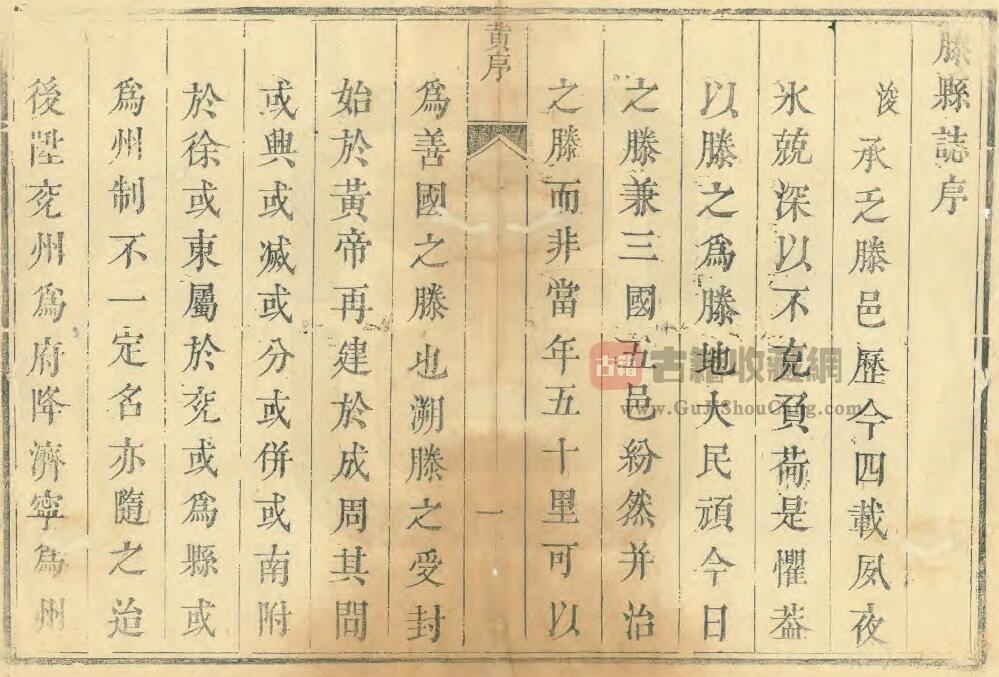 滕縣誌序
浚承乏滕邑歷今四載夙夜
氷兢深以不克負荷是懼蓋
以滕之爲滕地大民頑今日
之滕兼三國五邑紛然并治
之滕而非當年五十里可以
黄序
一
爲善國之滕也溯滕之受封
始於黃帝再建於成周其問
或興或滅或分或併或南附
於徐或東屬於兖或爲縣或
爲州制不一定名亦隨之迨
後陞兖州爲府降濟寧爲州
古籍
古籍收藏網
www.GuJiShouCang.com